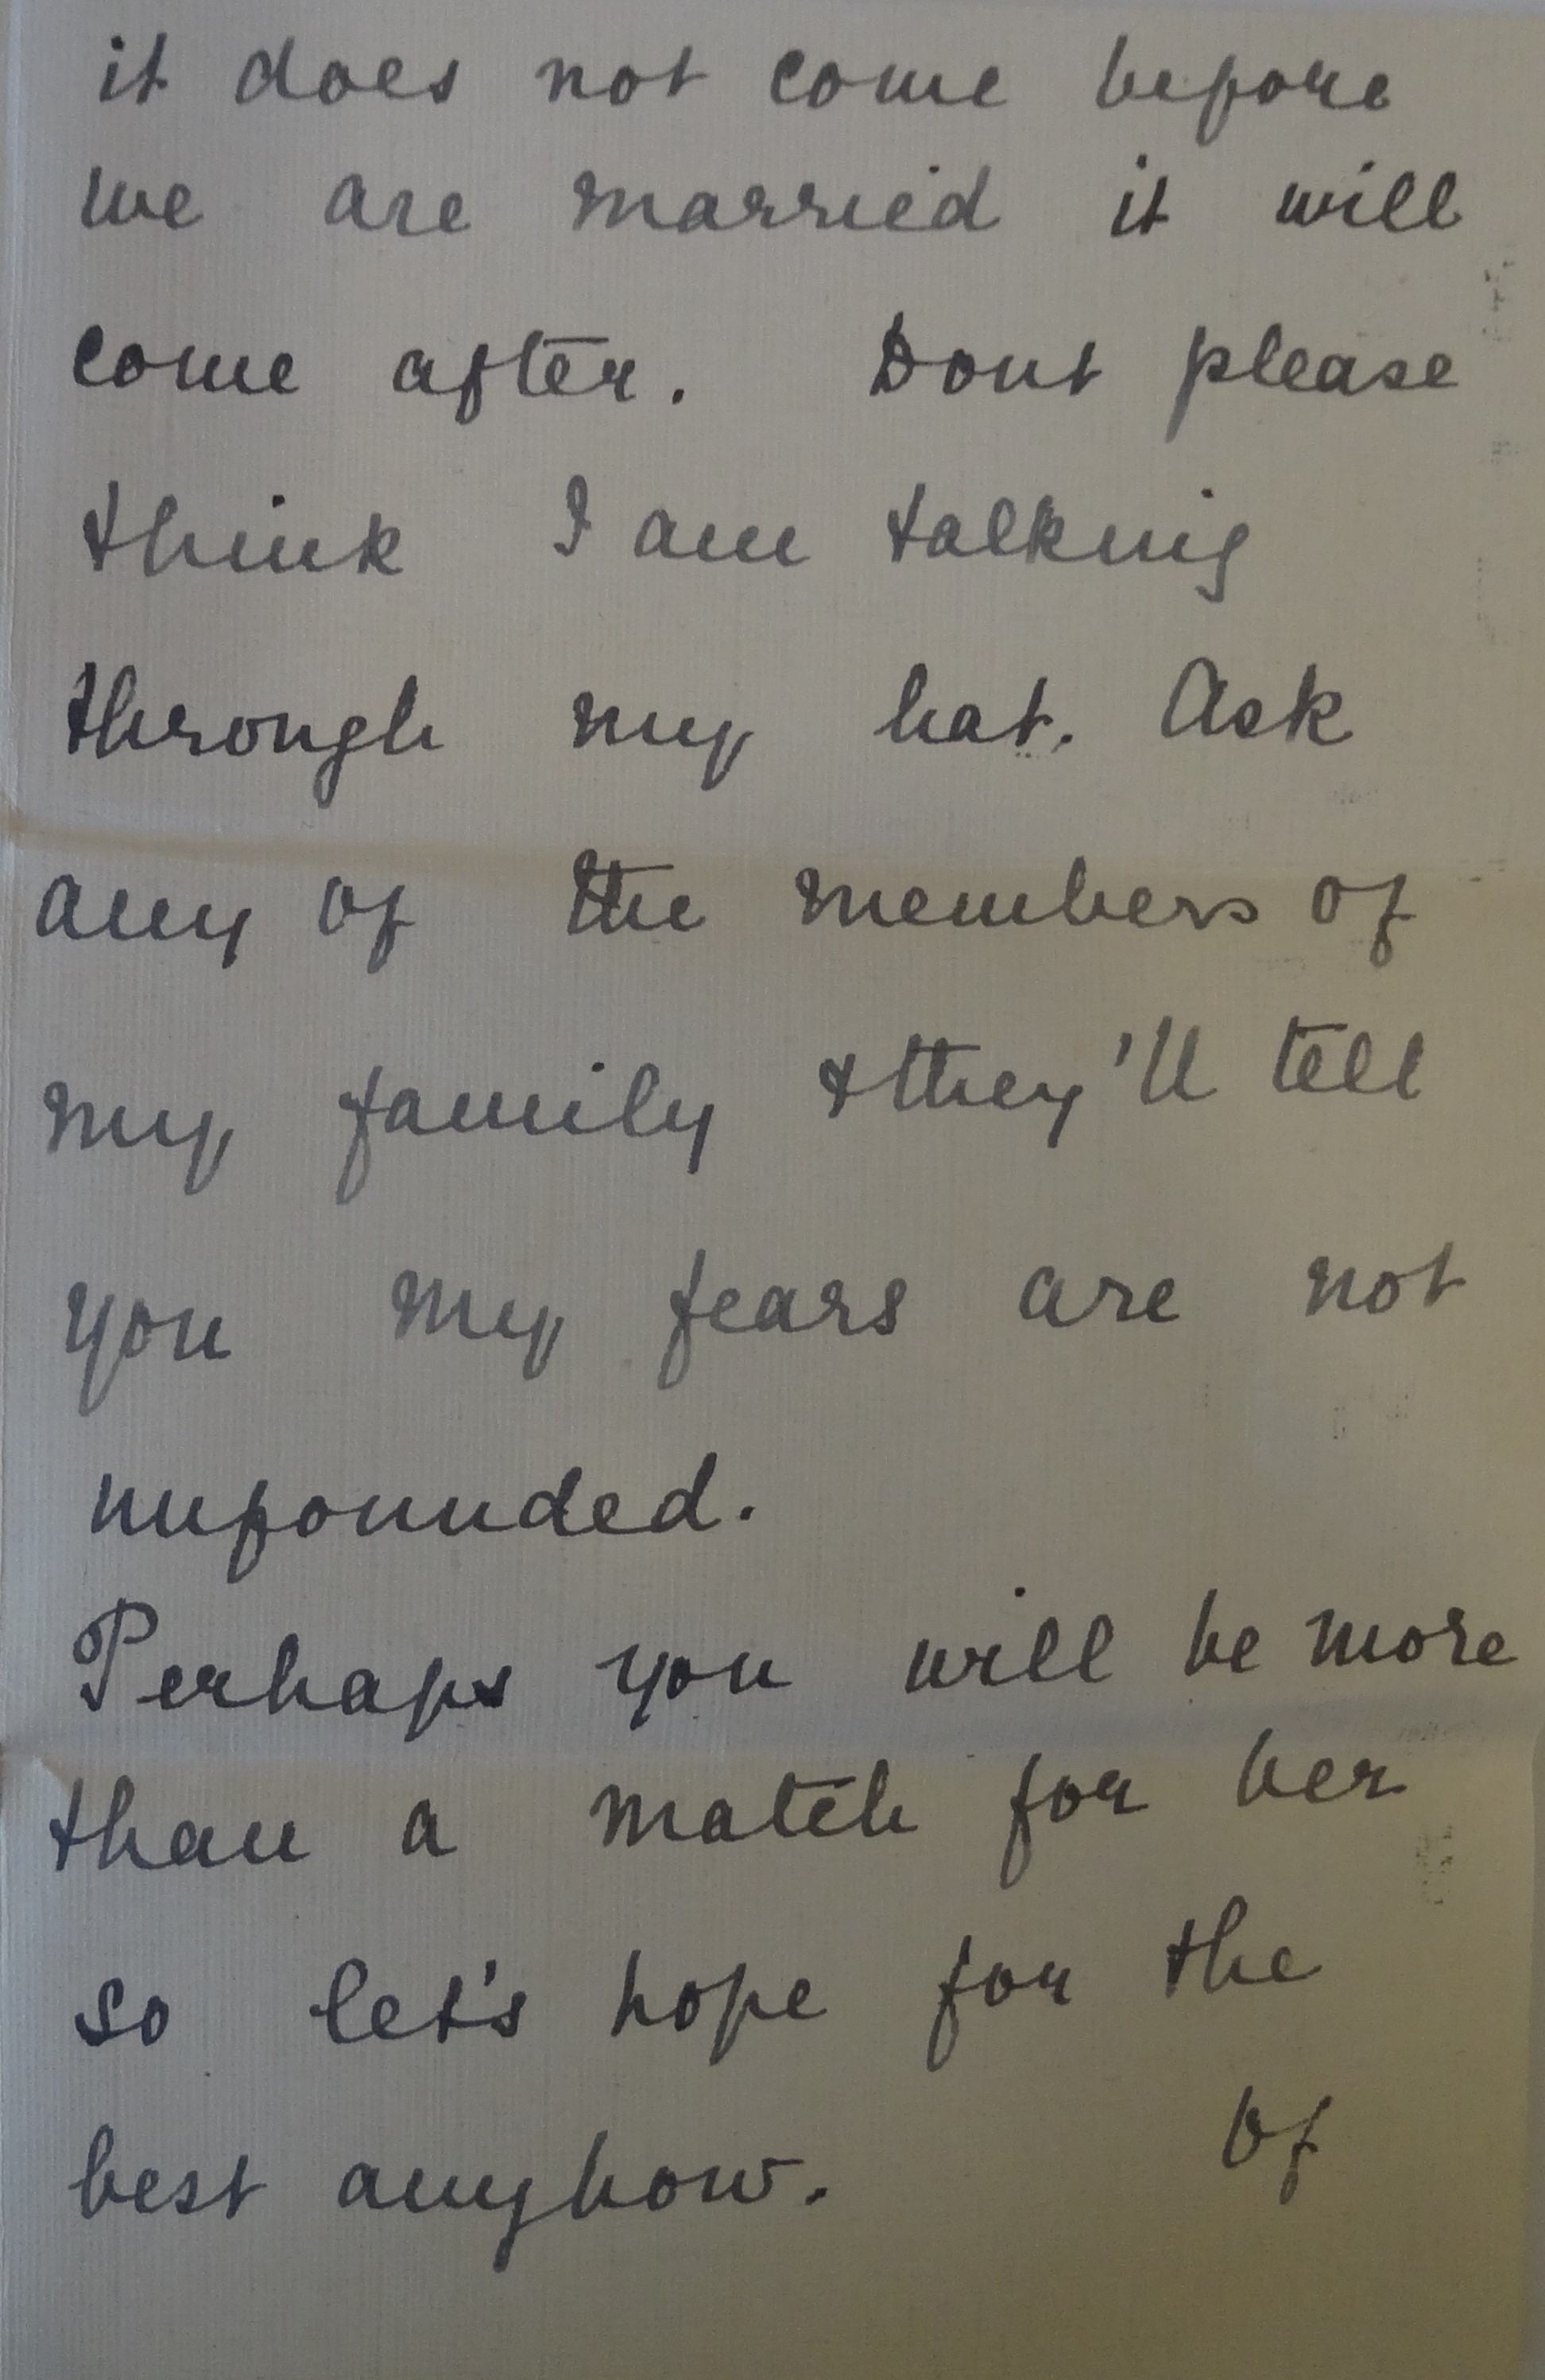 it does not come before
we are married it will
come after. Dont please
think I am talking
through my hat. Ask
any of the members of
my family & they'll tell
you my fears are not
unfounded.
Perhaps you will be more
than a match for her
so let's hope for the
best anyhow. Of